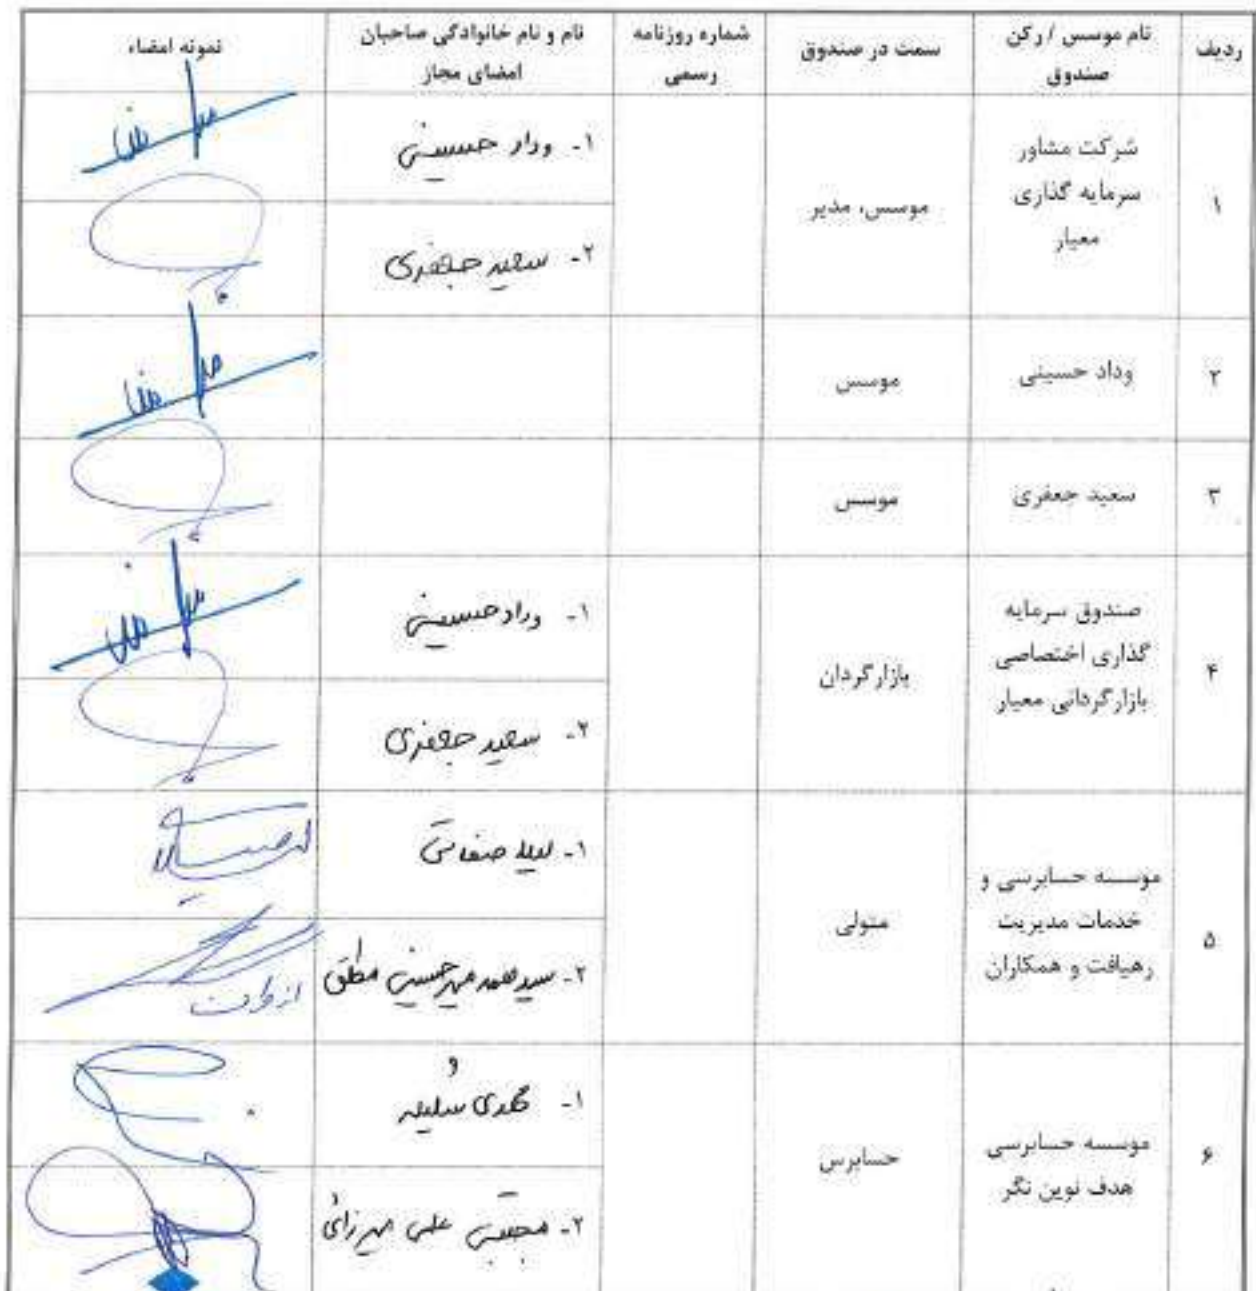 ردیف
نام موسس / رکن
صندوق
سمت در صندوق
شماره روزنامه
رسمی
نام و نام خانوادگی صاحبان
امضای مجاز
نمونه امضاء
۱
شرکت مشاور
سرمایه گذاری
معیار
موسس، مدیر
۱- وداد حسینی
۲- سعید جعفری
۲
وداد حسینی
موسس
۳
سعید جعفری
موسس
۴
صندوق سرمایه
گذاری اختصاصی
بازارگردانی معیار
بازارگردان
۱- وداد حسینی
۲- سعید جعفری
۵
موسسه حسابرسی و
خدمات مدیریت
رهیافت و همکاران
متولی
۱- لیلا صفاتی
۲- سیدمحمد میرحسینی مطلق
از طرف
۶
موسسه حسابرسی
هدف نوین نگر
حسابرس
۱-
۲- مجتبی علی میرزائی